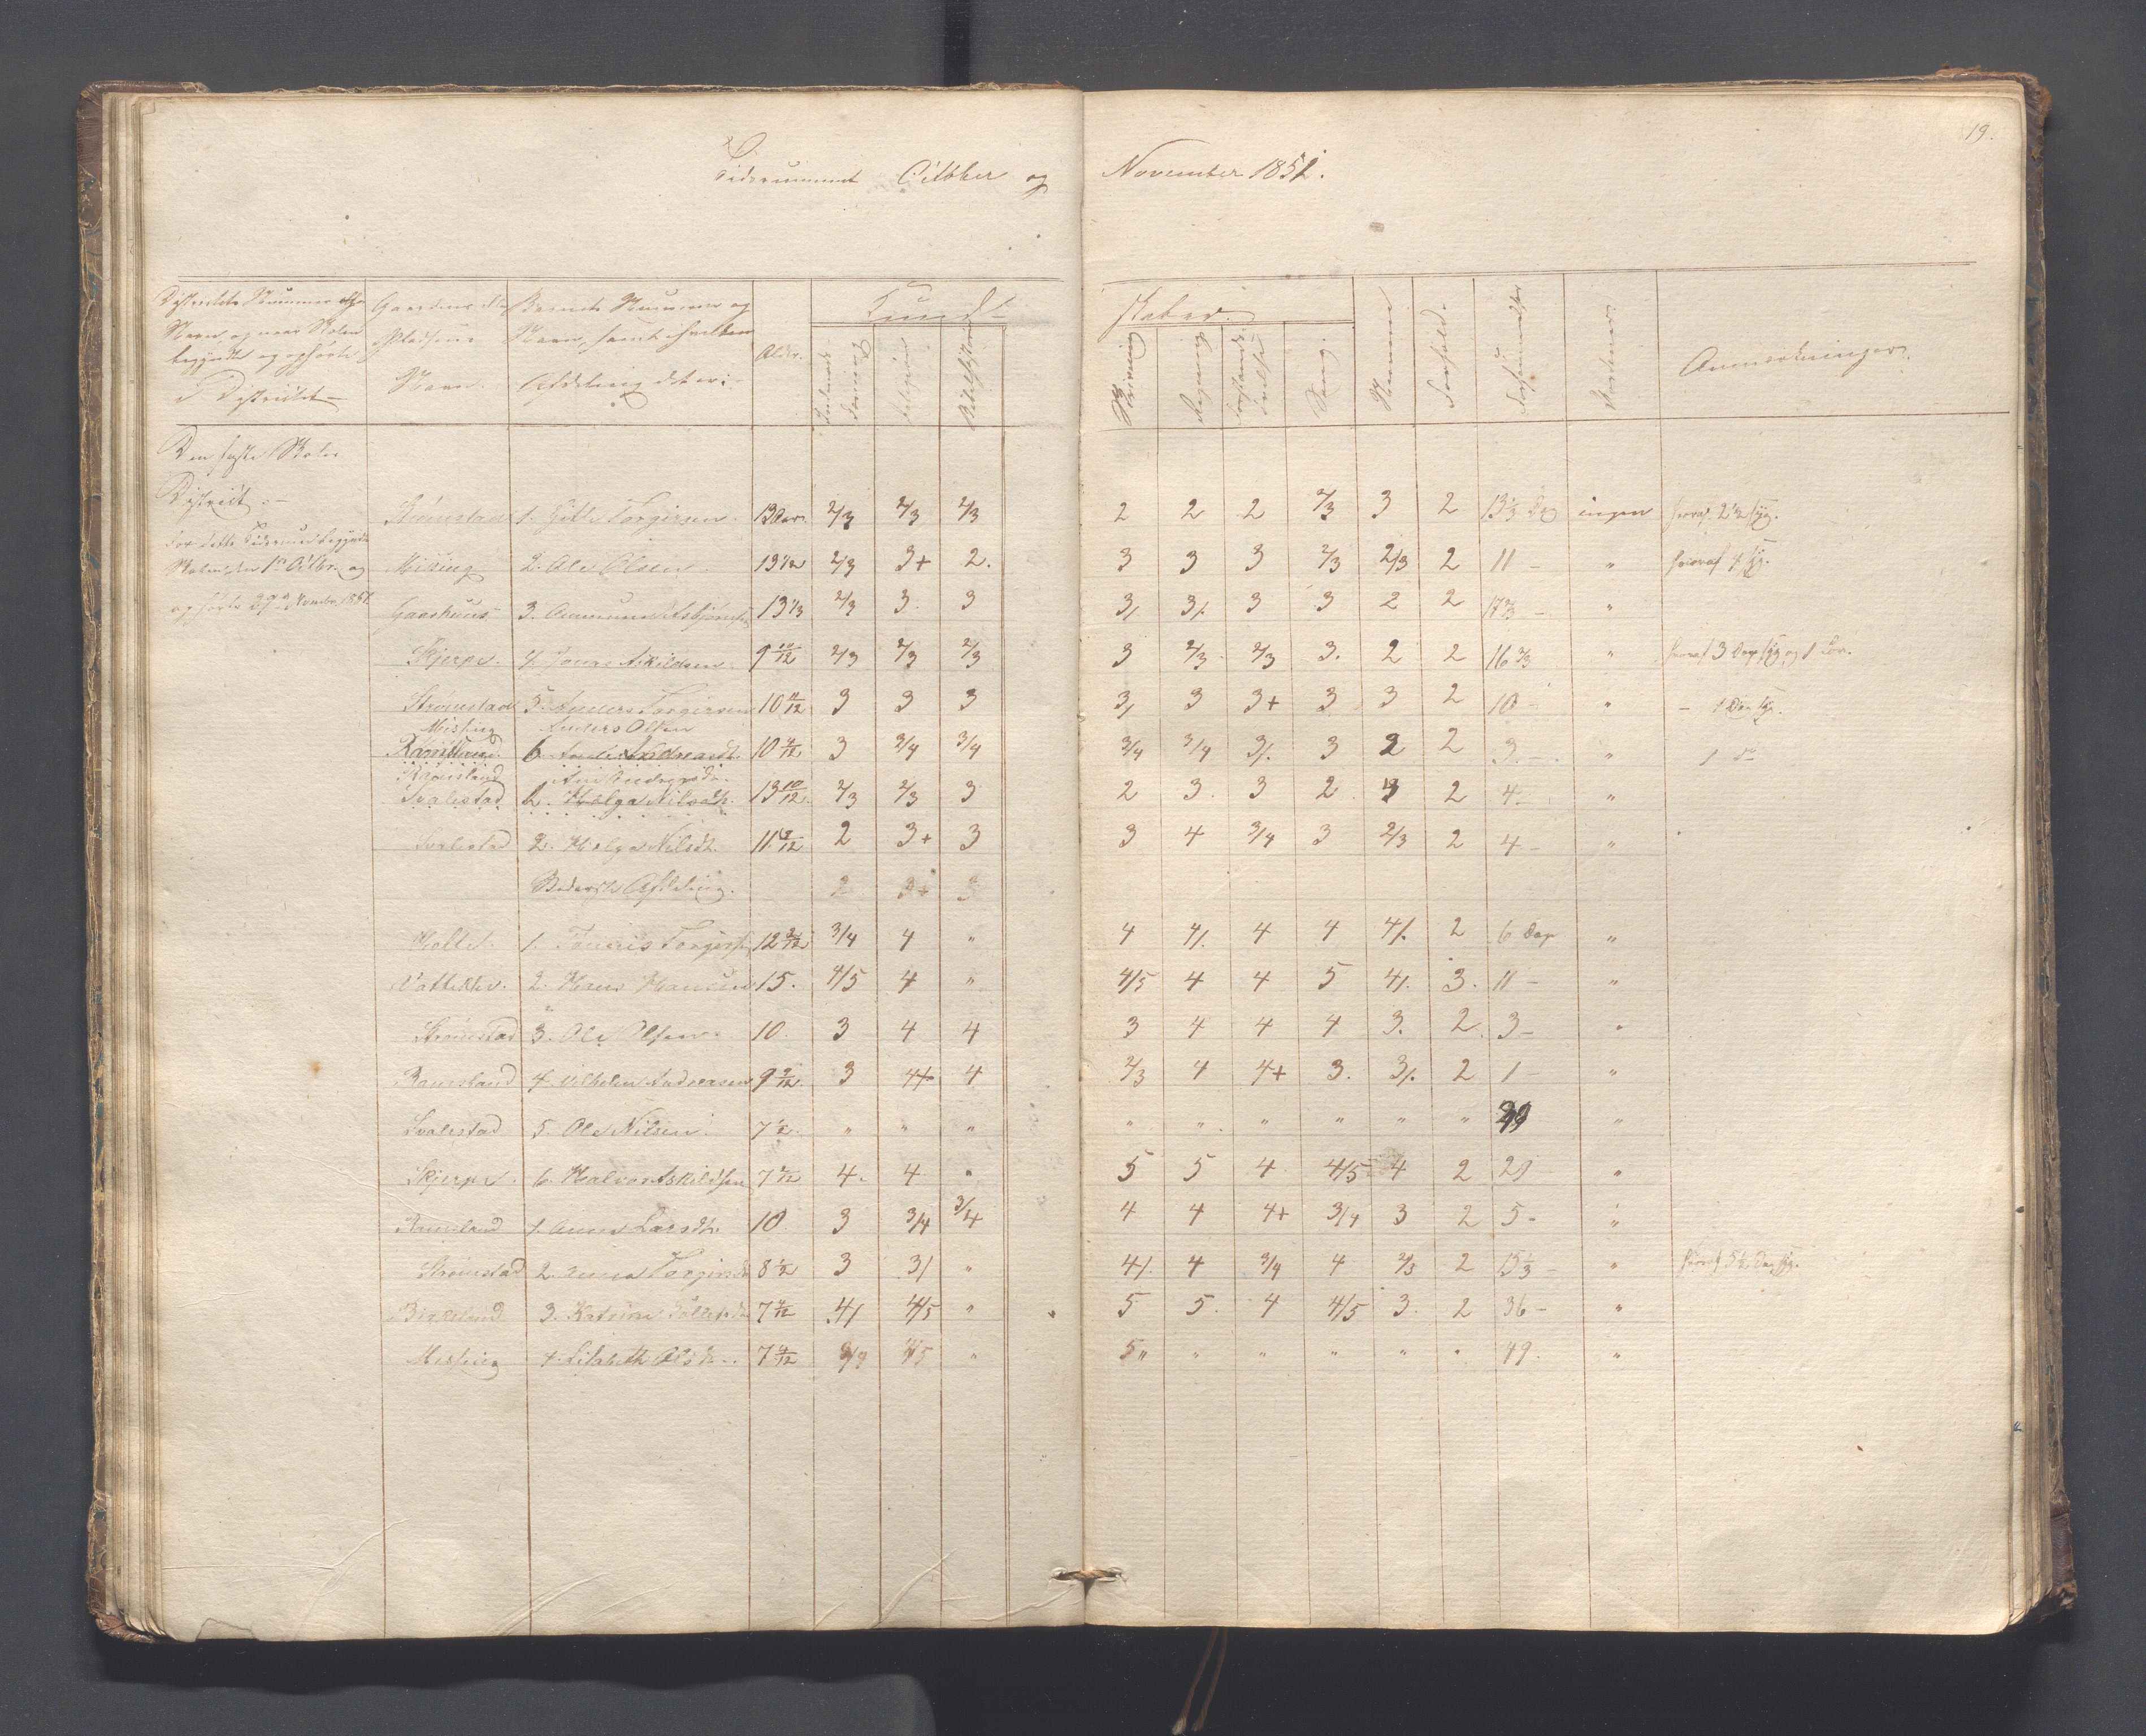 19.
Tidsrummet Octbber og November 1851.
Districtets Nummer og Navn, og naar Skolen begyndte og ophørte i Districtet —
Gaardens eller Pladsens Navn.
Barnets Nummer og Navn, samt i hvilken Afdeling det er i —
Alder.
Kund- skaber.
Religion
Skrivning
Regning
Sang.
Nemme
Forhold.
Forsømmelser
Anmærkninger.
Den faste Skoles
District.—
for dette Tidsrum begyndte
Skolen den 1ste Octbr. og
ophørte 29de Novembr. 1851.
Strømstad 1. Gitle Torgersen. 13 Aar. 2/3 2/3 2/3 2 2 2 2/3 3 2 13 1/3 Dag ingen hvoraf 2 1/2 syg.
Missing 2. Ole Olsen 13 1/2 2/3 3+ 2. 3 3 3 2/3 2/3 2 11 — " hvoraf 4 syg.
Gaashuus 3. Aanund Asbjørnsen 13 1/3 2/3 3. 3 3/. 3/. 3 3 2 2 17 2/3 — "
Skjerpe. 4. Jonas Askildsen. 9 10/12 2/3 2/3 2/3 3 2/3. 2/3 3. 2 2 16 2/3 " hvoraf 3 Dage syg og 1 Lov.
Strømstad 5. Anders Torgersen 10 11/12 3 3 3 3/. 3 3+ 3 3 2 10 — " — 1 Dag syg.
Missing Anders Olsen
Ramsland. 6. 10 4/12 3 3/4 3/4 3/4 3/4 3/. 3 2 2 3. — " 1 do
Ramsland Ane Andreasdr.
Svalestad 1. Helga Nilsdtr. 13 10/12 2/3 2/3 3 2 3. 3 2 3 2 4 — "
Svalestad 2. Helga Nilsdtr. 11 2/12 2 3+ 3 3 4 3/4 3 2/3 2 4 — "
Nederste Afdeling. 2 3+ 3
Mollet. 1. Tønnes Torgersen 12 3/12 3/4 4 " 4 4/. 4 4 4/. 2 6 Dage "
Vatteklev. 2. Hans Hansen 15. 4/5 4 " 4/5 4 4 5 4/. 3. 11 — "
Strømstad 3. Ole Olsen. 10. 3 4 4 3 4 4 4 3. 2. 3 — "
Ramsland 4. Vilhelm Andreasen 9 9/12 3 4+ 4 2/3 4 4+ 3. 3/. 2 1 — "
Svalestad 5. Ole Nilsen. 7 1/2. " " " " " " " " " 49 "
Skjerpe. 6. Halvor Askildsen 7 1/12 4. 4 " 5 5 4. 4/5 4 2 29 "
Ramsland 1. Anna Larsdtr. 10. 3 3/4 3/4 4 4 4+ 3/4 3 2 5 — "
Strømstad 2. Anna Torgersdr 8 1/2 3 3/ " 4/. 4 3/4 4 2/3 2 15 1/3 — " hvoraf 5 1/2 Dag syg.
Birkeland 3. Katrine Tollefsdr 7 4/12 4/ 4/5 " 5 5. 4 4/5 3. 2 36 — "
Missing 4. Lisabeth Olsdr. 7 4/12 4/5 " 5 " " " " " " 49. "